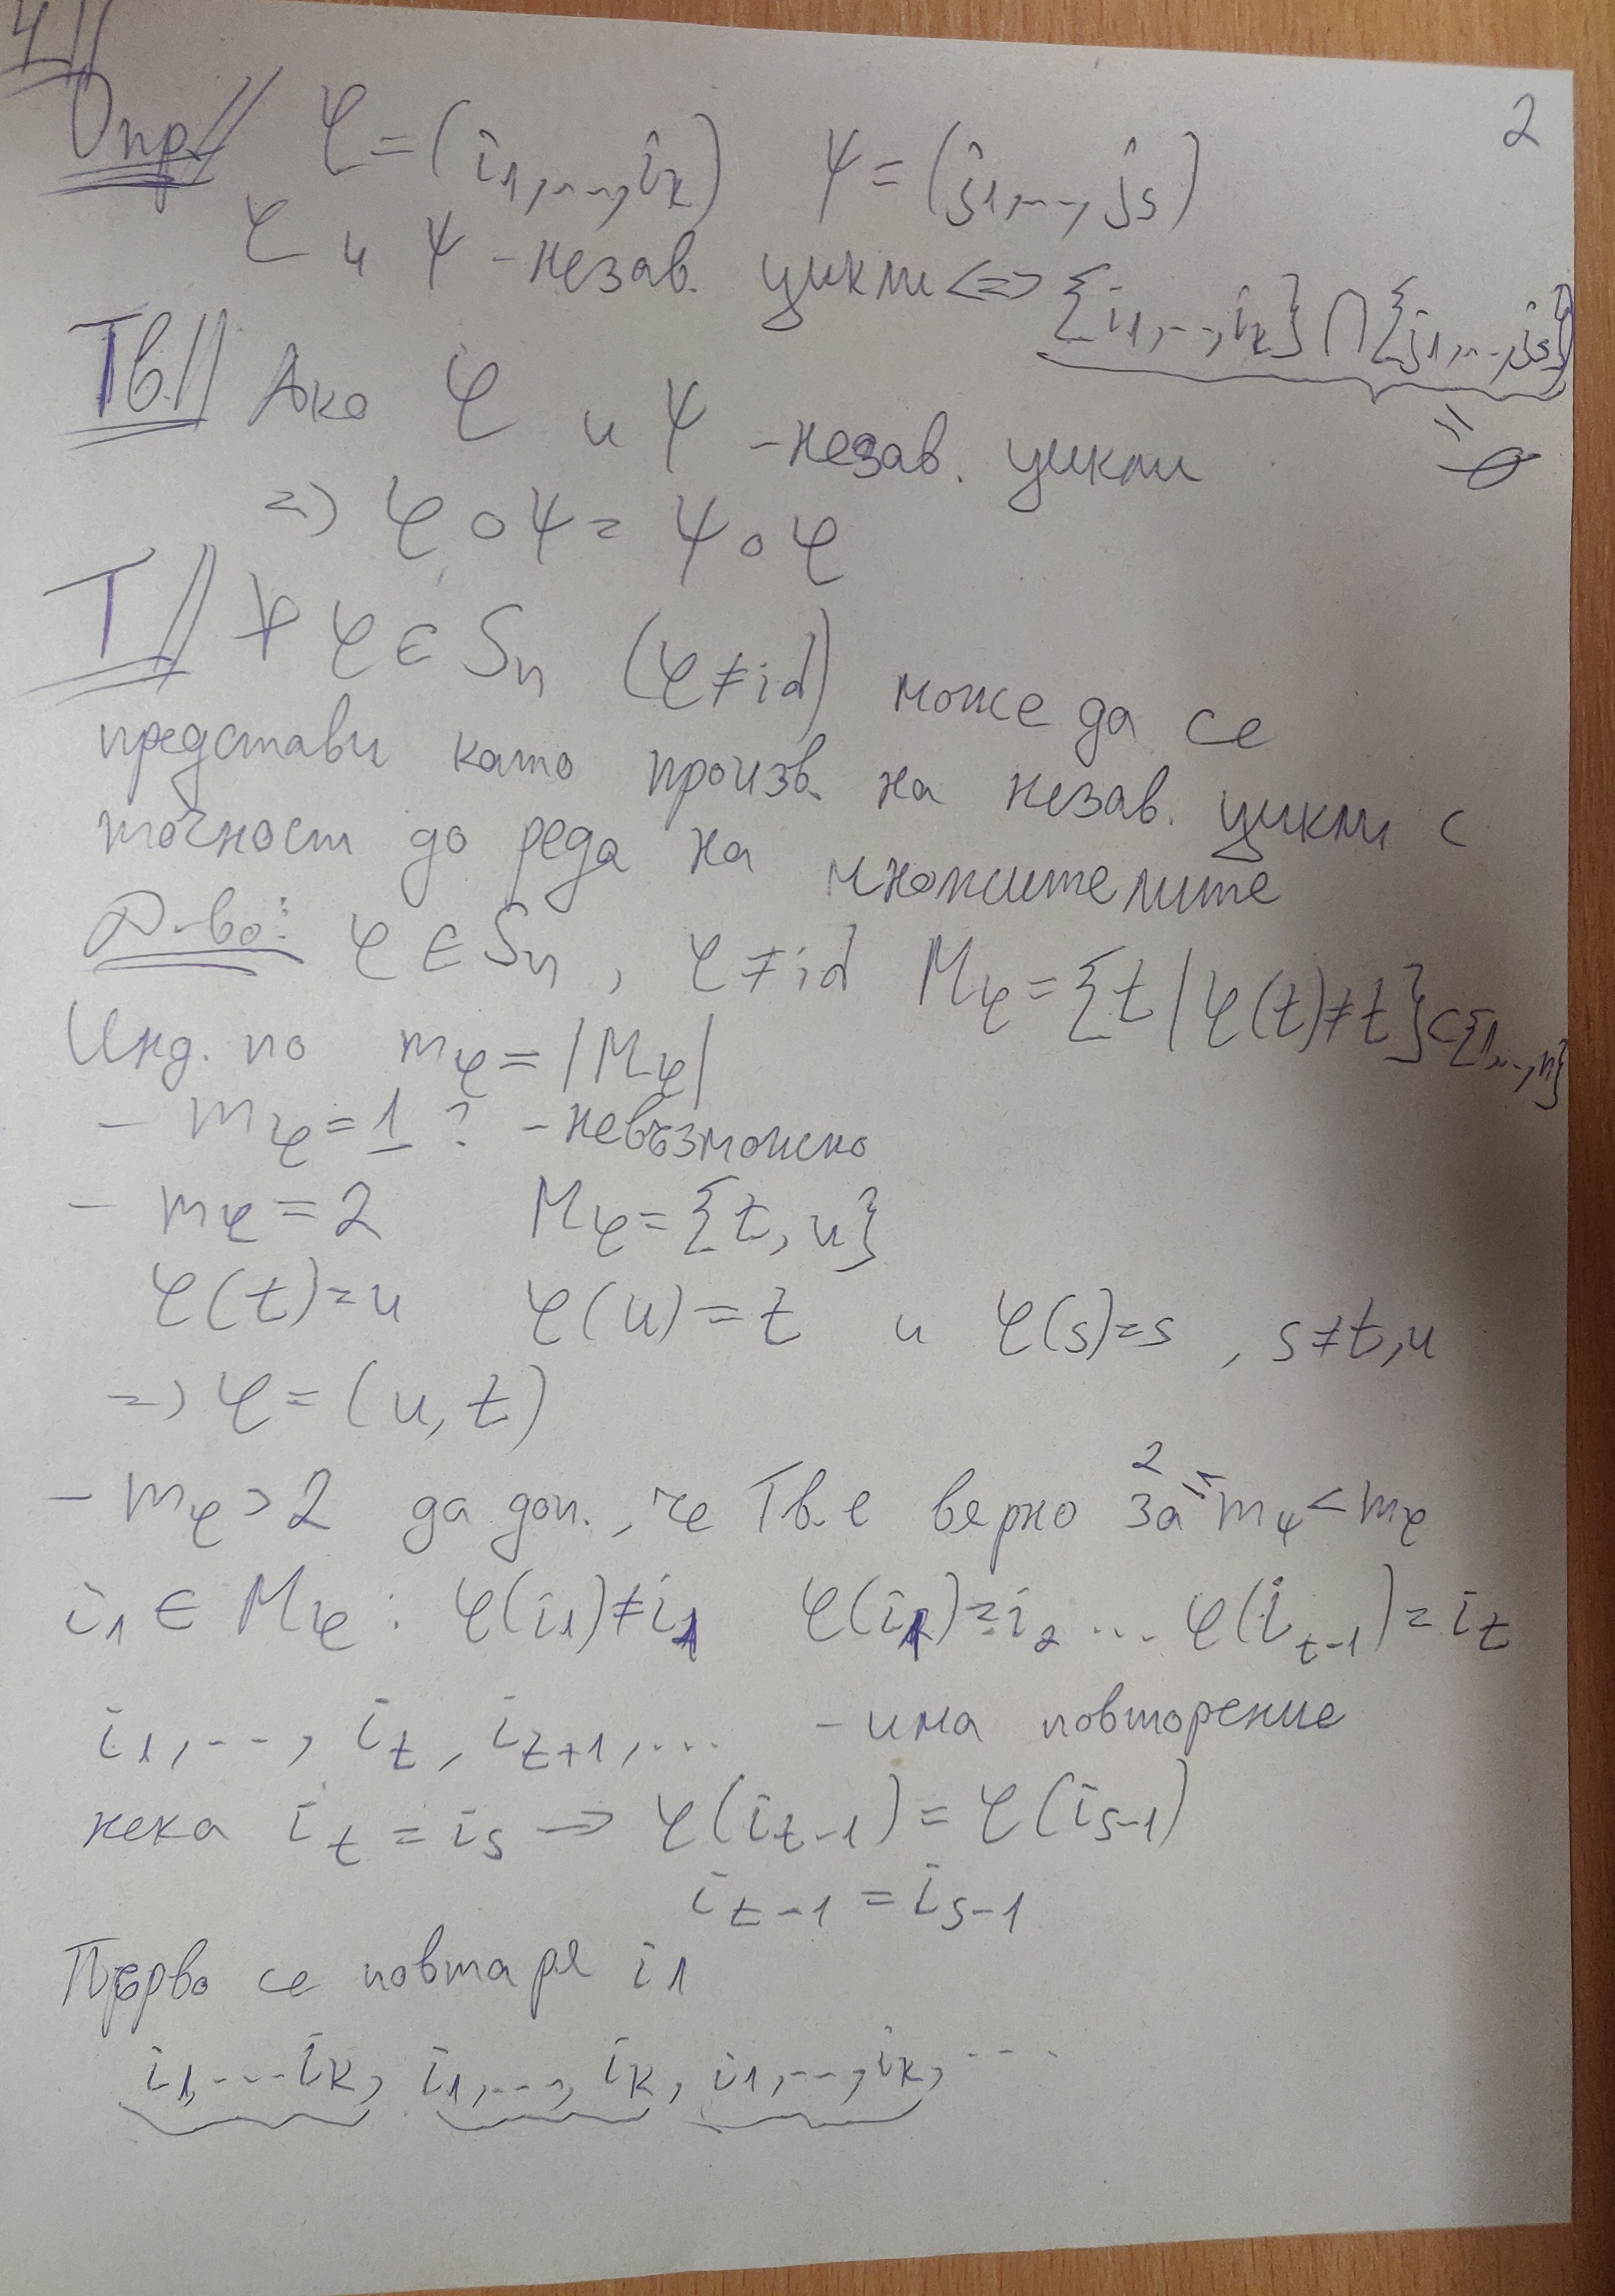 4||
2
Опр.|| φ = (i₁,...,iₖ) ψ = (j₁,...,jₛ)
φ и ψ - незав. цикли <=> {i₁,...,iₖ} ∩ {j₁,...,jₛ}
= ∅
Тв.|| Ако φ и ψ - незав. цикли
=> φ ∘ ψ = ψ ∘ φ
Т|| ∀ φ ∈ Sₙ (φ ≠ id) може да се
представи като произв. на незав. цикли с
точност до реда на множителите
Д-во: φ ∈ Sₙ, φ ≠ id M_φ = {t | φ(t) ≠ t} ⊂ {1,...,n}
Инд. по m_φ = |M_φ|
- m_φ = 1 ? - невъзможно
- m_φ = 2 M_φ = {t, u}
φ(t) = u φ(u) = t и φ(s) = s, s ≠ t, u
=> φ = (u, t)
- m_φ > 2 да доп., че Тв. е вярно за 2 ≤ m_ψ < m_φ
i₁ ∈ M_φ : φ(i₁) ≠ i₁ φ(i₁) = i₂ ... φ(i_{t-1}) = i_t
i₁, ..., i_t, i_{t+1}, ... - има повторение
нека i_t = i_s → φ(i_{t-1}) = φ(i_{s-1})
i_{t-1} = i_{s-1}
Първо се повтаря i₁
i₁, ... iₖ, i₁, ..., iₖ, i₁, ..., iₖ, ...